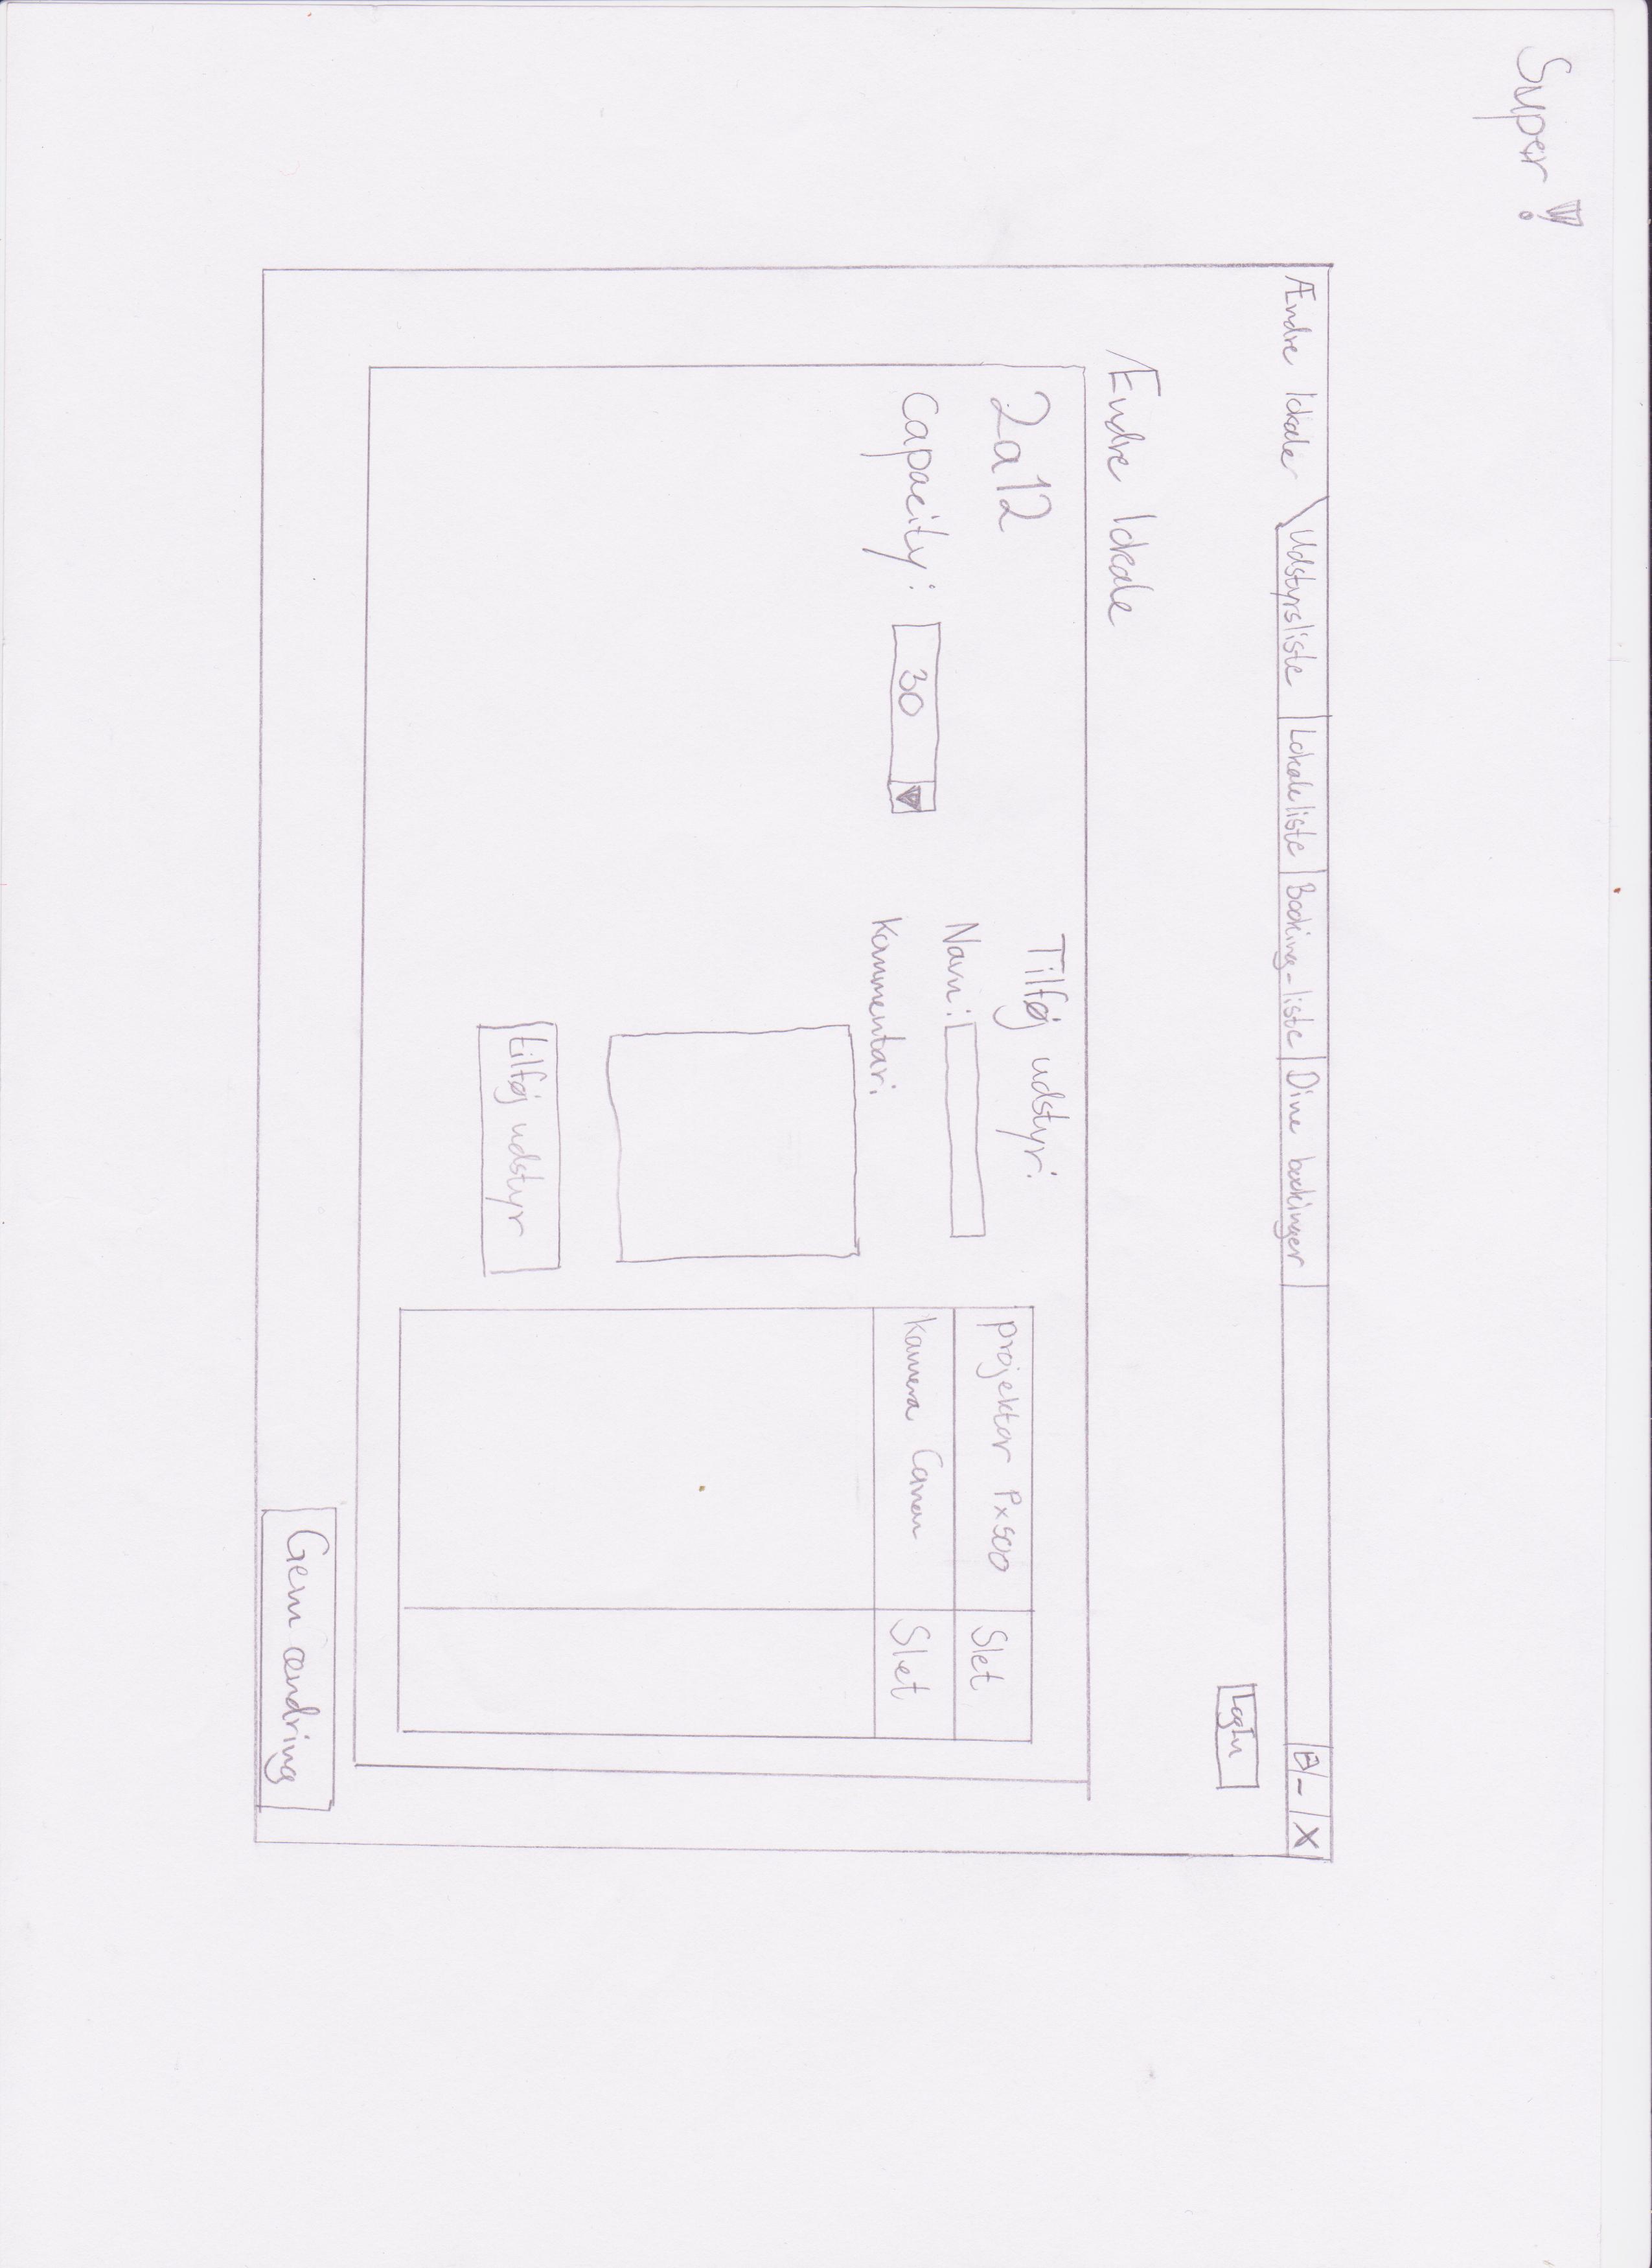 Super!
Ændre lokale
Udstyrsliste
Lokaleliste
Booking-liste
Dine bookinger
X
LogIn
Ændre lokale
2a12
Capacity: 30
Tilføj udstyr:
Navn:
Kommentar:
tilføj udstyr
projektor Px500 Slet
kamera Canon Slet
Gem ændring